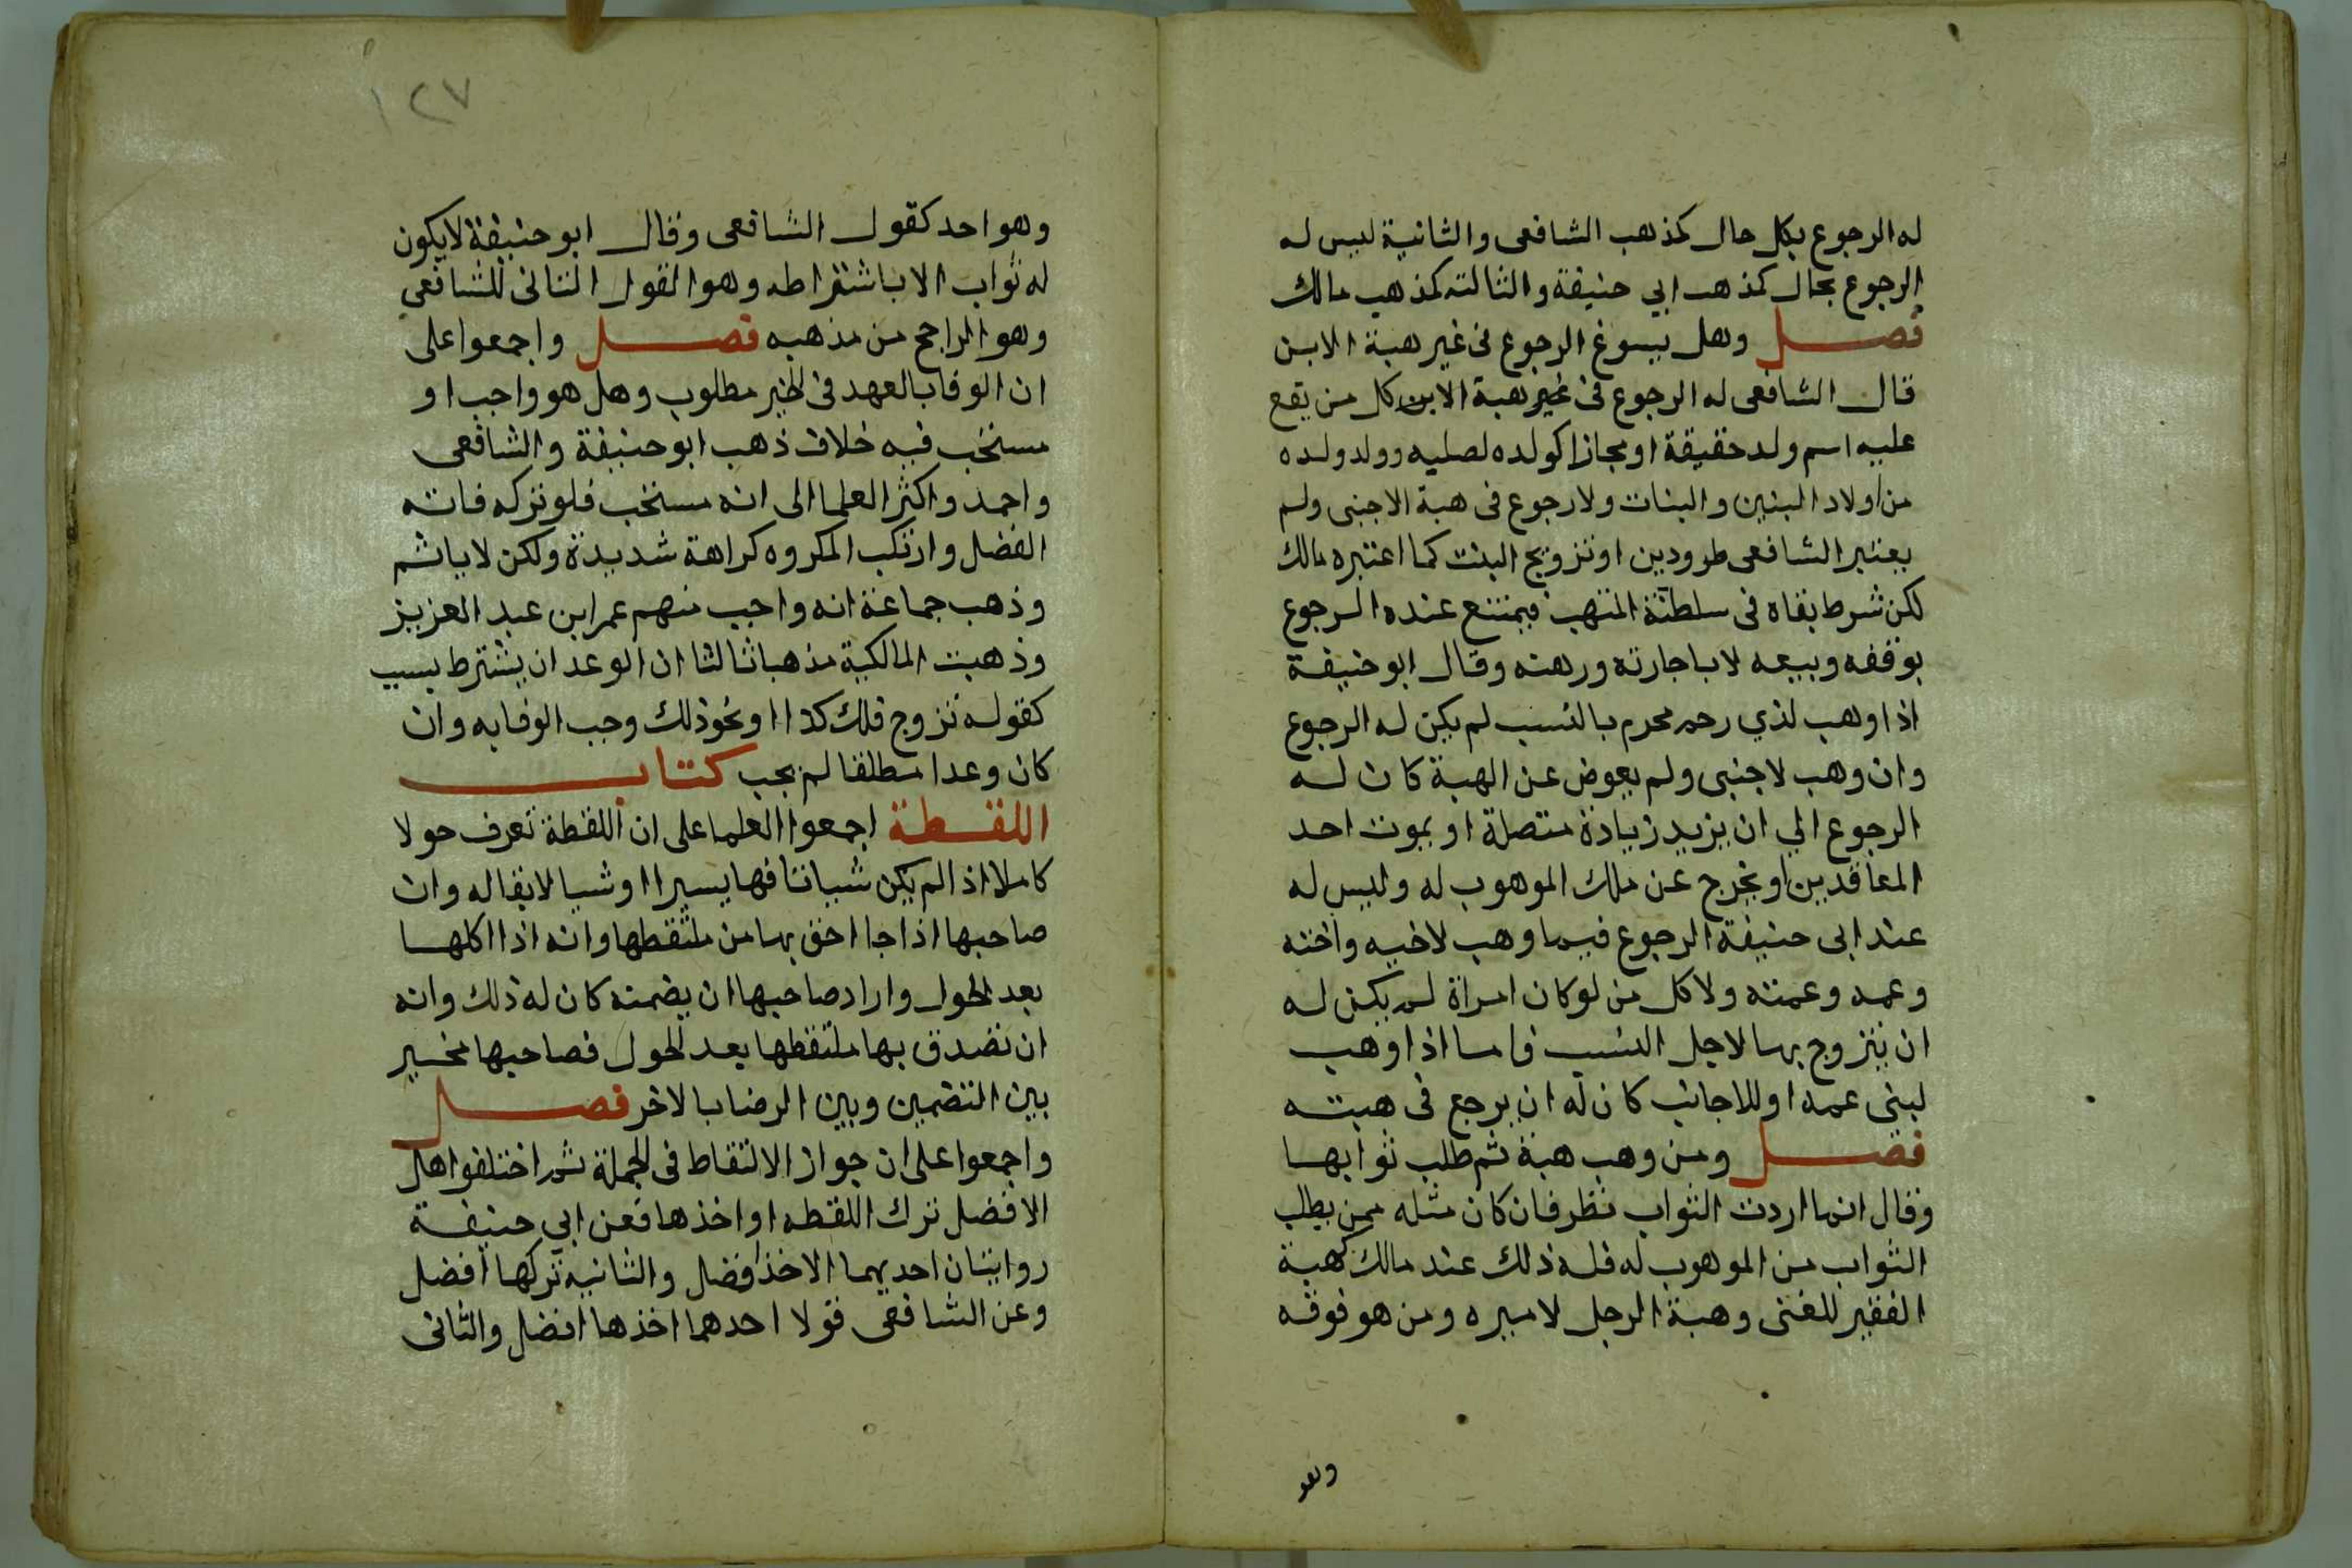 له الرجوع بكل حال كمذهب الشافعى والثانية ليس له
الرجوع بحال كمذهب ابي حنيفة والثالثه كمذهب مالك
فصل وهل يسوغ الرجوع فى غير هبة الابن
قال الشافعى له الرجوع فى غير هبة الابن كل من يقع
عليه اسم ولد حقيقة او مجازا كولده لصلبه وولد ولده
من اولاد البنين والبنات ولا رجوع فى هبة الاجنبى ولم
يعتبر الشافعى طرودين او تزويج البنت كما اعتبره مالك
لكن شرط بقاه فى سلطنة المتهب فيمتنع عنده الرجوع
بوقفه وبيعه لا باجارته ورهنه وقال ابو حنيفة
اذا وهب لذي رحم محرم بالنسب لم يكن له الرجوع
وان وهب لاجنبى ولم يعوض عن الهبة كان له
الرجوع الي ان يزيد زيادة متصلة او بموت احد
المعاقدين او يخرج عن ملك الموهوب له وليس له
عند ابى حنيفة الرجوع فيما وهب لاخيه واخته
وعمه وعمته ولا كل من لو كان امراة لم يكن له
ان يتزوج بها لاجل النسب فاما اذا وهب
لبنى عمه او للاجانب كان له ان يرجع فى هبته
فصل ومن وهب هبة ثم طلب ثوابها
وقال انما اردت الثواب نظر فان كان مثله ممن يطلب
الثواب من الموهوب له فله ذلك عند مالك كهبة
الفقير للغنى وهبة الرجل لاميره ومن هو فوقه
وهو
١٢٧
وهو احد كقول الشافعى وقال ابو حنيفة لا يكون
له ثواب الا باشتراطه وهو القول الثانى للشافعي
وهو الراجح من مذهبه فصل واجمعوا على
ان الوفا بالعهد فى الخير مطلوب وهل هو واجب او
مستحب فيه خلاف ذهب ابو حنيفة والشافعى
واحمد واكثر العلما الى انه مستحب فلو تركه فاته
الفضل وارتكب المكروه كراهة شديدة ولكن لا ياثم
وذهب جماعة انه واجب منهم عمر ابن عبد العزيز
وذهبت المالكية مذهبا ثالثا ان الوعد ان يشترط بسبب
كقوله تزوج فلك كذا او نحو ذلك وجب الوفا به وان
كان وعدا مطلقا لم يجب كتاب
اللقطة اجمعوا العلما على ان اللقطة تعرف حولا
كاملا اذا لم يكن شيا تافها يسيرا او شيا لا بقا له وان
صاحبها اذا جا احق بها من ملتقطها وانه اذا اكلها
بعد الحول واراد صاحبها ان يضمنه كان له ذلك وانه
ان تصدق بها ملتقطها بعد الحول فصاحبها مخير
بين التضمين وبين الرضا بالاخر فصل
واجمعوا على ان جواز الالتقاط فى الجملة ثم اختلفوا هل
الافضل ترك اللقطه او اخذها فعن ابي حنيفة
روايتان احديهما الاخذ افضل والثانيه تركها افضل
وعن الشافعى قولا احدهما اخذها افضل والثانى